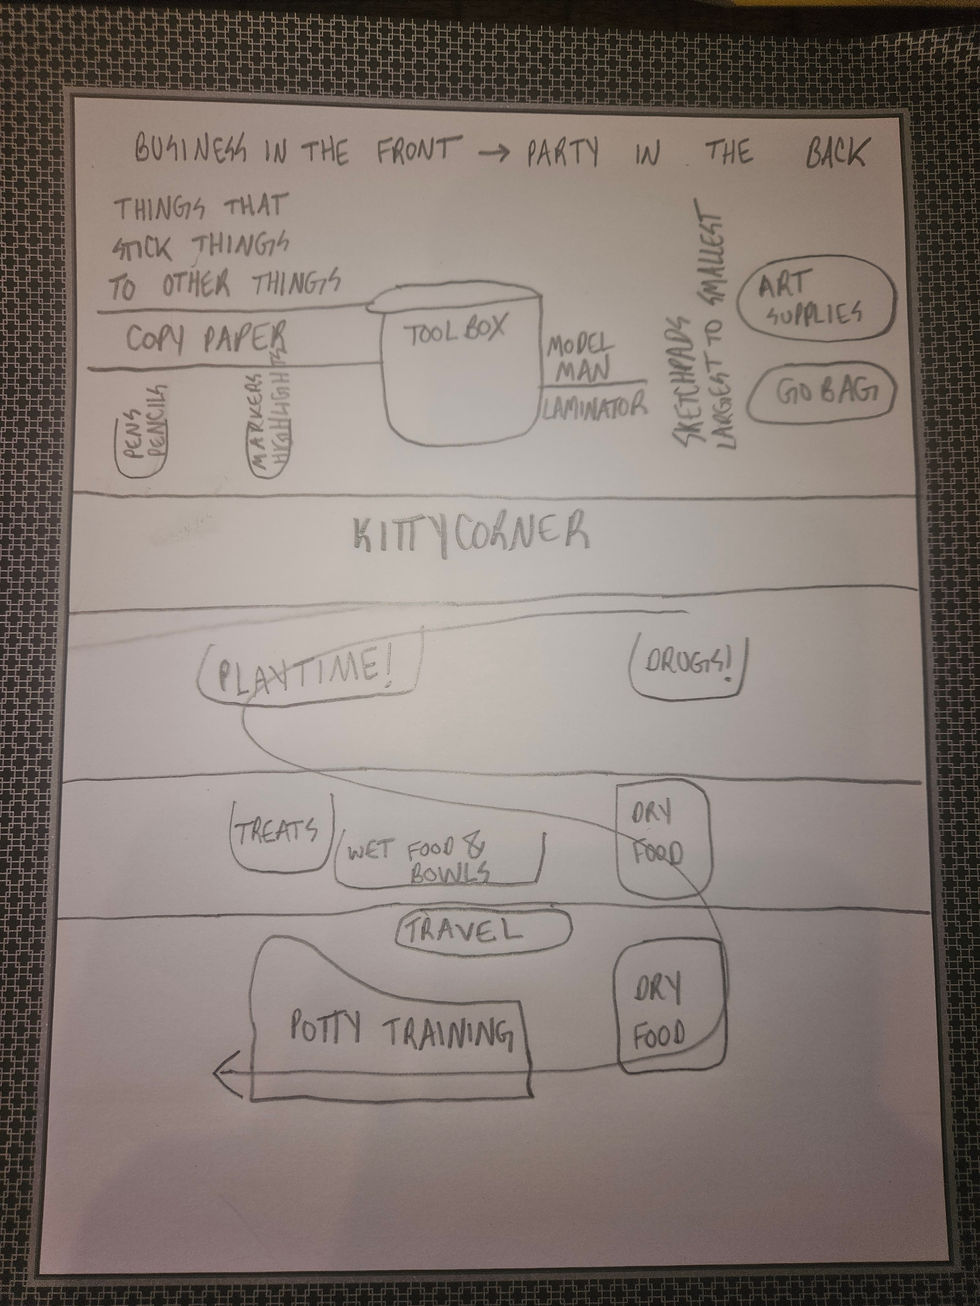 BUSINESS IN THE FRONT → PARTY IN THE BACK
THINGS THAT
STICK THINGS
TO OTHER THINGS
COPY PAPER
PENS
PENCILS
MARKERS
HIGHLIGHTS
TOOLBOX
MODEL
MAN
LAMINATOR
SKETCHPADS
LARGEST TO SMALLEST
ART
SUPPLIES
GO BAG
KITTYCORNER
PLAYTIME!
DRUGS!
TREATS
WET FOOD &
BOWLS
DRY
FOOD
TRAVEL
POTTY TRAINING
DRY
FOOD